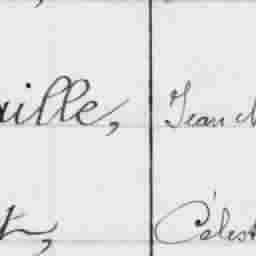 aille, Jean M
t, Célest